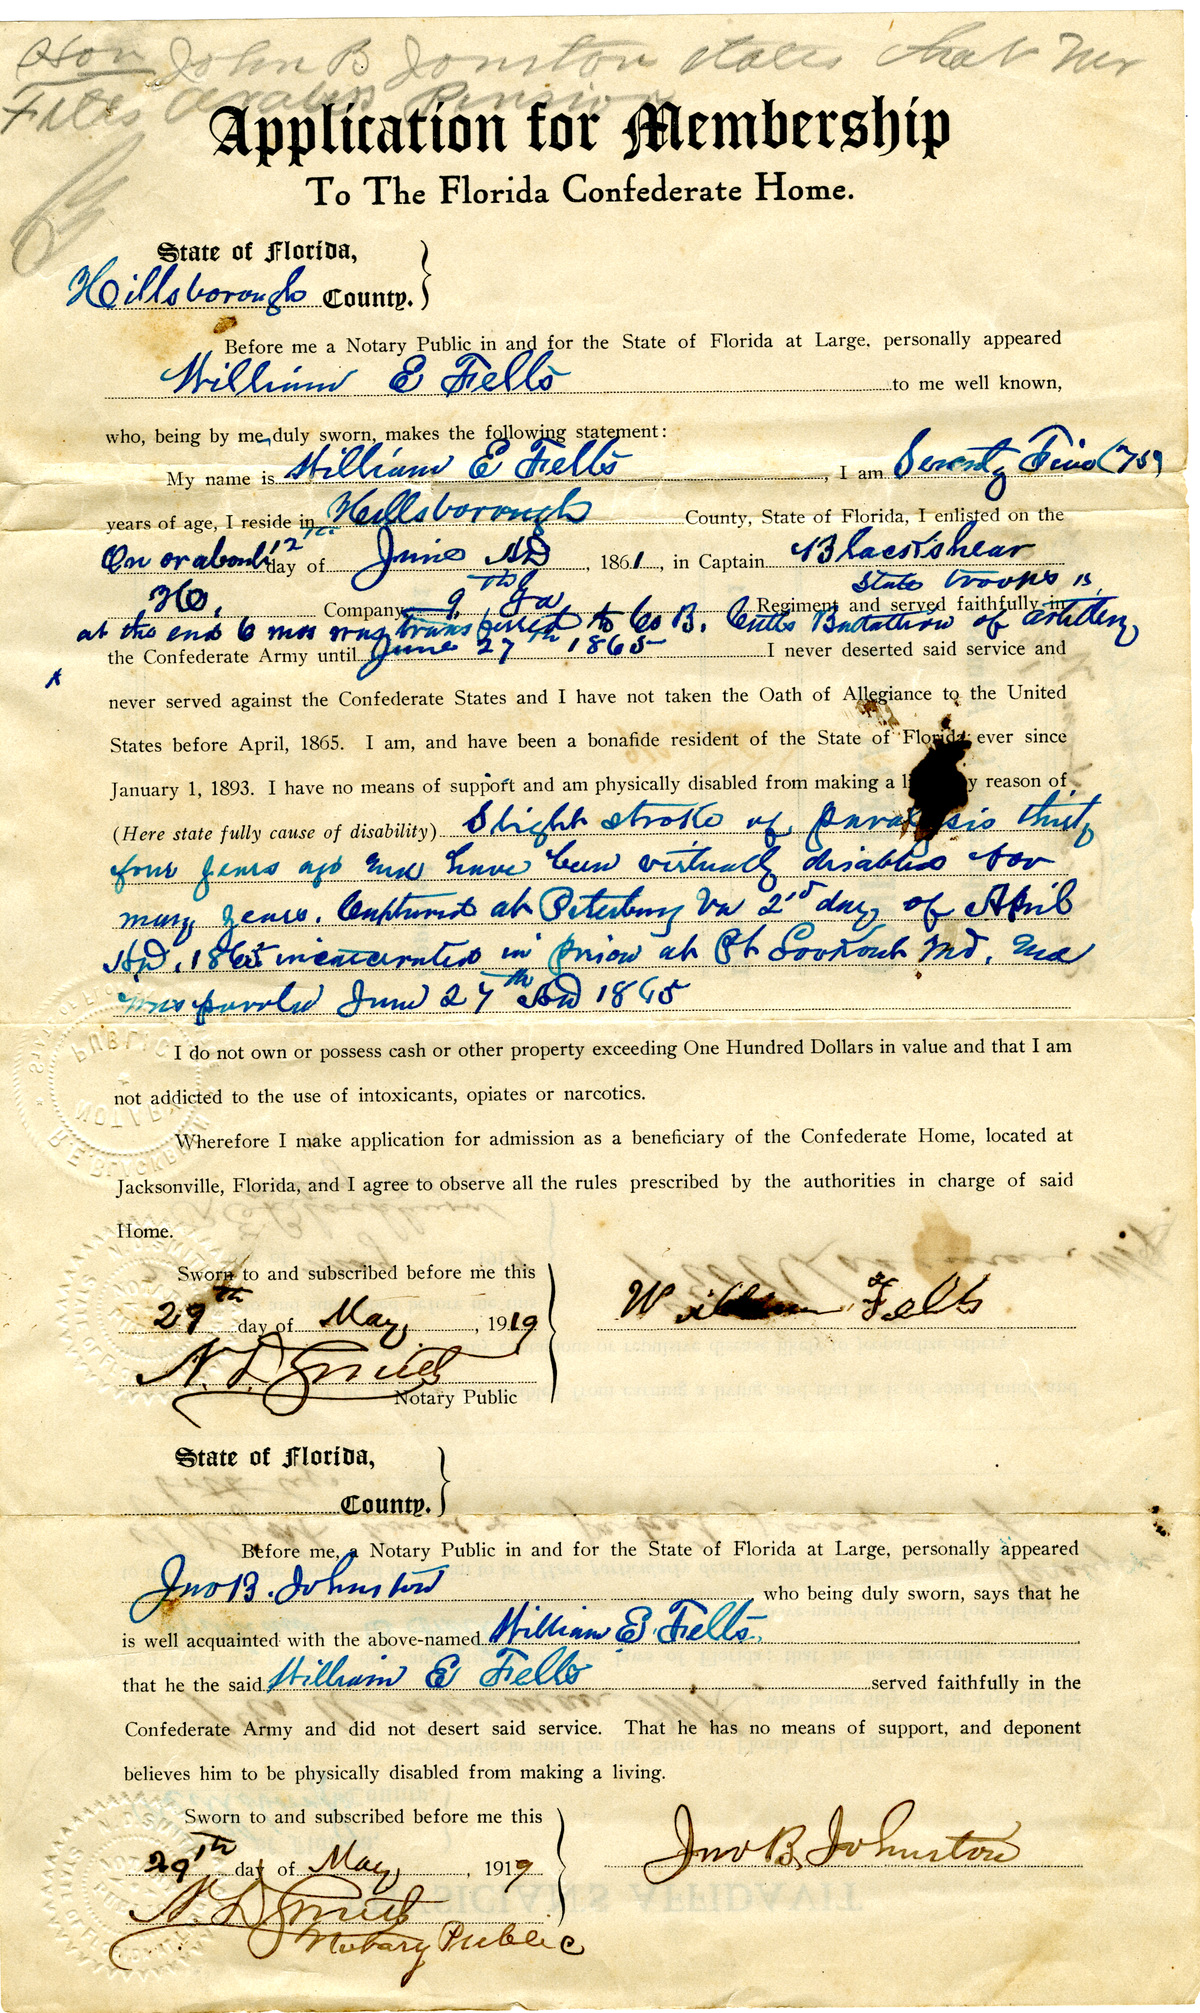 Hon John B Jonston states that Mr
Felts draws Pension
Application for Membership
To The Florida Confederate Home.
State of Florida,
Hillsborough County.
Before me a Notary Public in and for the State of Florida at Large, personally appeared
William E Felts to me well known,
who, being by me, duly sworn, makes the following statement:
My name is William E Felts, I am Seventy Five (75)
years of age, I reside in Hillsborough County, State of Florida, I enlisted on the
On or about 12th day of June AD, 1861, in Captain Blackshear
State troops is
Company 9th Ga Regiment and served faithfully in
at the end 6 mos was transferred to Co B. Cutts Battallion of Artillery
the Confederate Army until June 27th 1865 I never deserted said service and
never served against the Confederate States and I have not taken the Oath of Allegiance to the United
States before April, 1865. I am, and have been a bonafide resident of the State of Florida ever since
January 1, 1893. I have no means of support and am physically disabled from making a by reason of
(Here state fully cause of disability) Slight stroke of paralysis thirty
four years ago and have been virtually disabled for
many years. Captured at Petersburg Va 2nd day of April
AD. 1865 incarcerated in prison at Pt Lookout Md. and
was paroled June 27th AD 1865
I do not own or possess cash or other property exceeding One Hundred Dollars in value and that I am
not addicted to the use of intoxicants, opiates or narcotics.
Wherefore I make application for admission as a beneficiary of the Confederate Home, located at
Jacksonville, Florida, and I agree to observe all the rules prescribed by the authorities in charge of said
Home.
Sworn to and subscribed before me this
29th day of May, 1919
William E Felts
N. D. Smith
Notary Public
State of Florida,
County.
Before me, a Notary Public in and for the State of Florida at Large, personally appeared
Jno B. Johnston who being duly sworn, says that he
is well acquainted with the above-named William E. Felts.
that he the said William E Felts served faithfully in the
Confederate Army and did not desert said service. That he has no means of support, and deponent
believes him to be physically disabled from making a living.
Sworn to and subscribed before me this
29th day of May, 1919
Jno B. Johnston
N D Smith
Notary Public